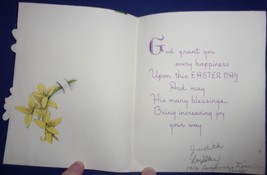 God grant you
every happiness
Upon this EASTER DAY
And may
His many blessings
Bring increasing joy
your way
Judith